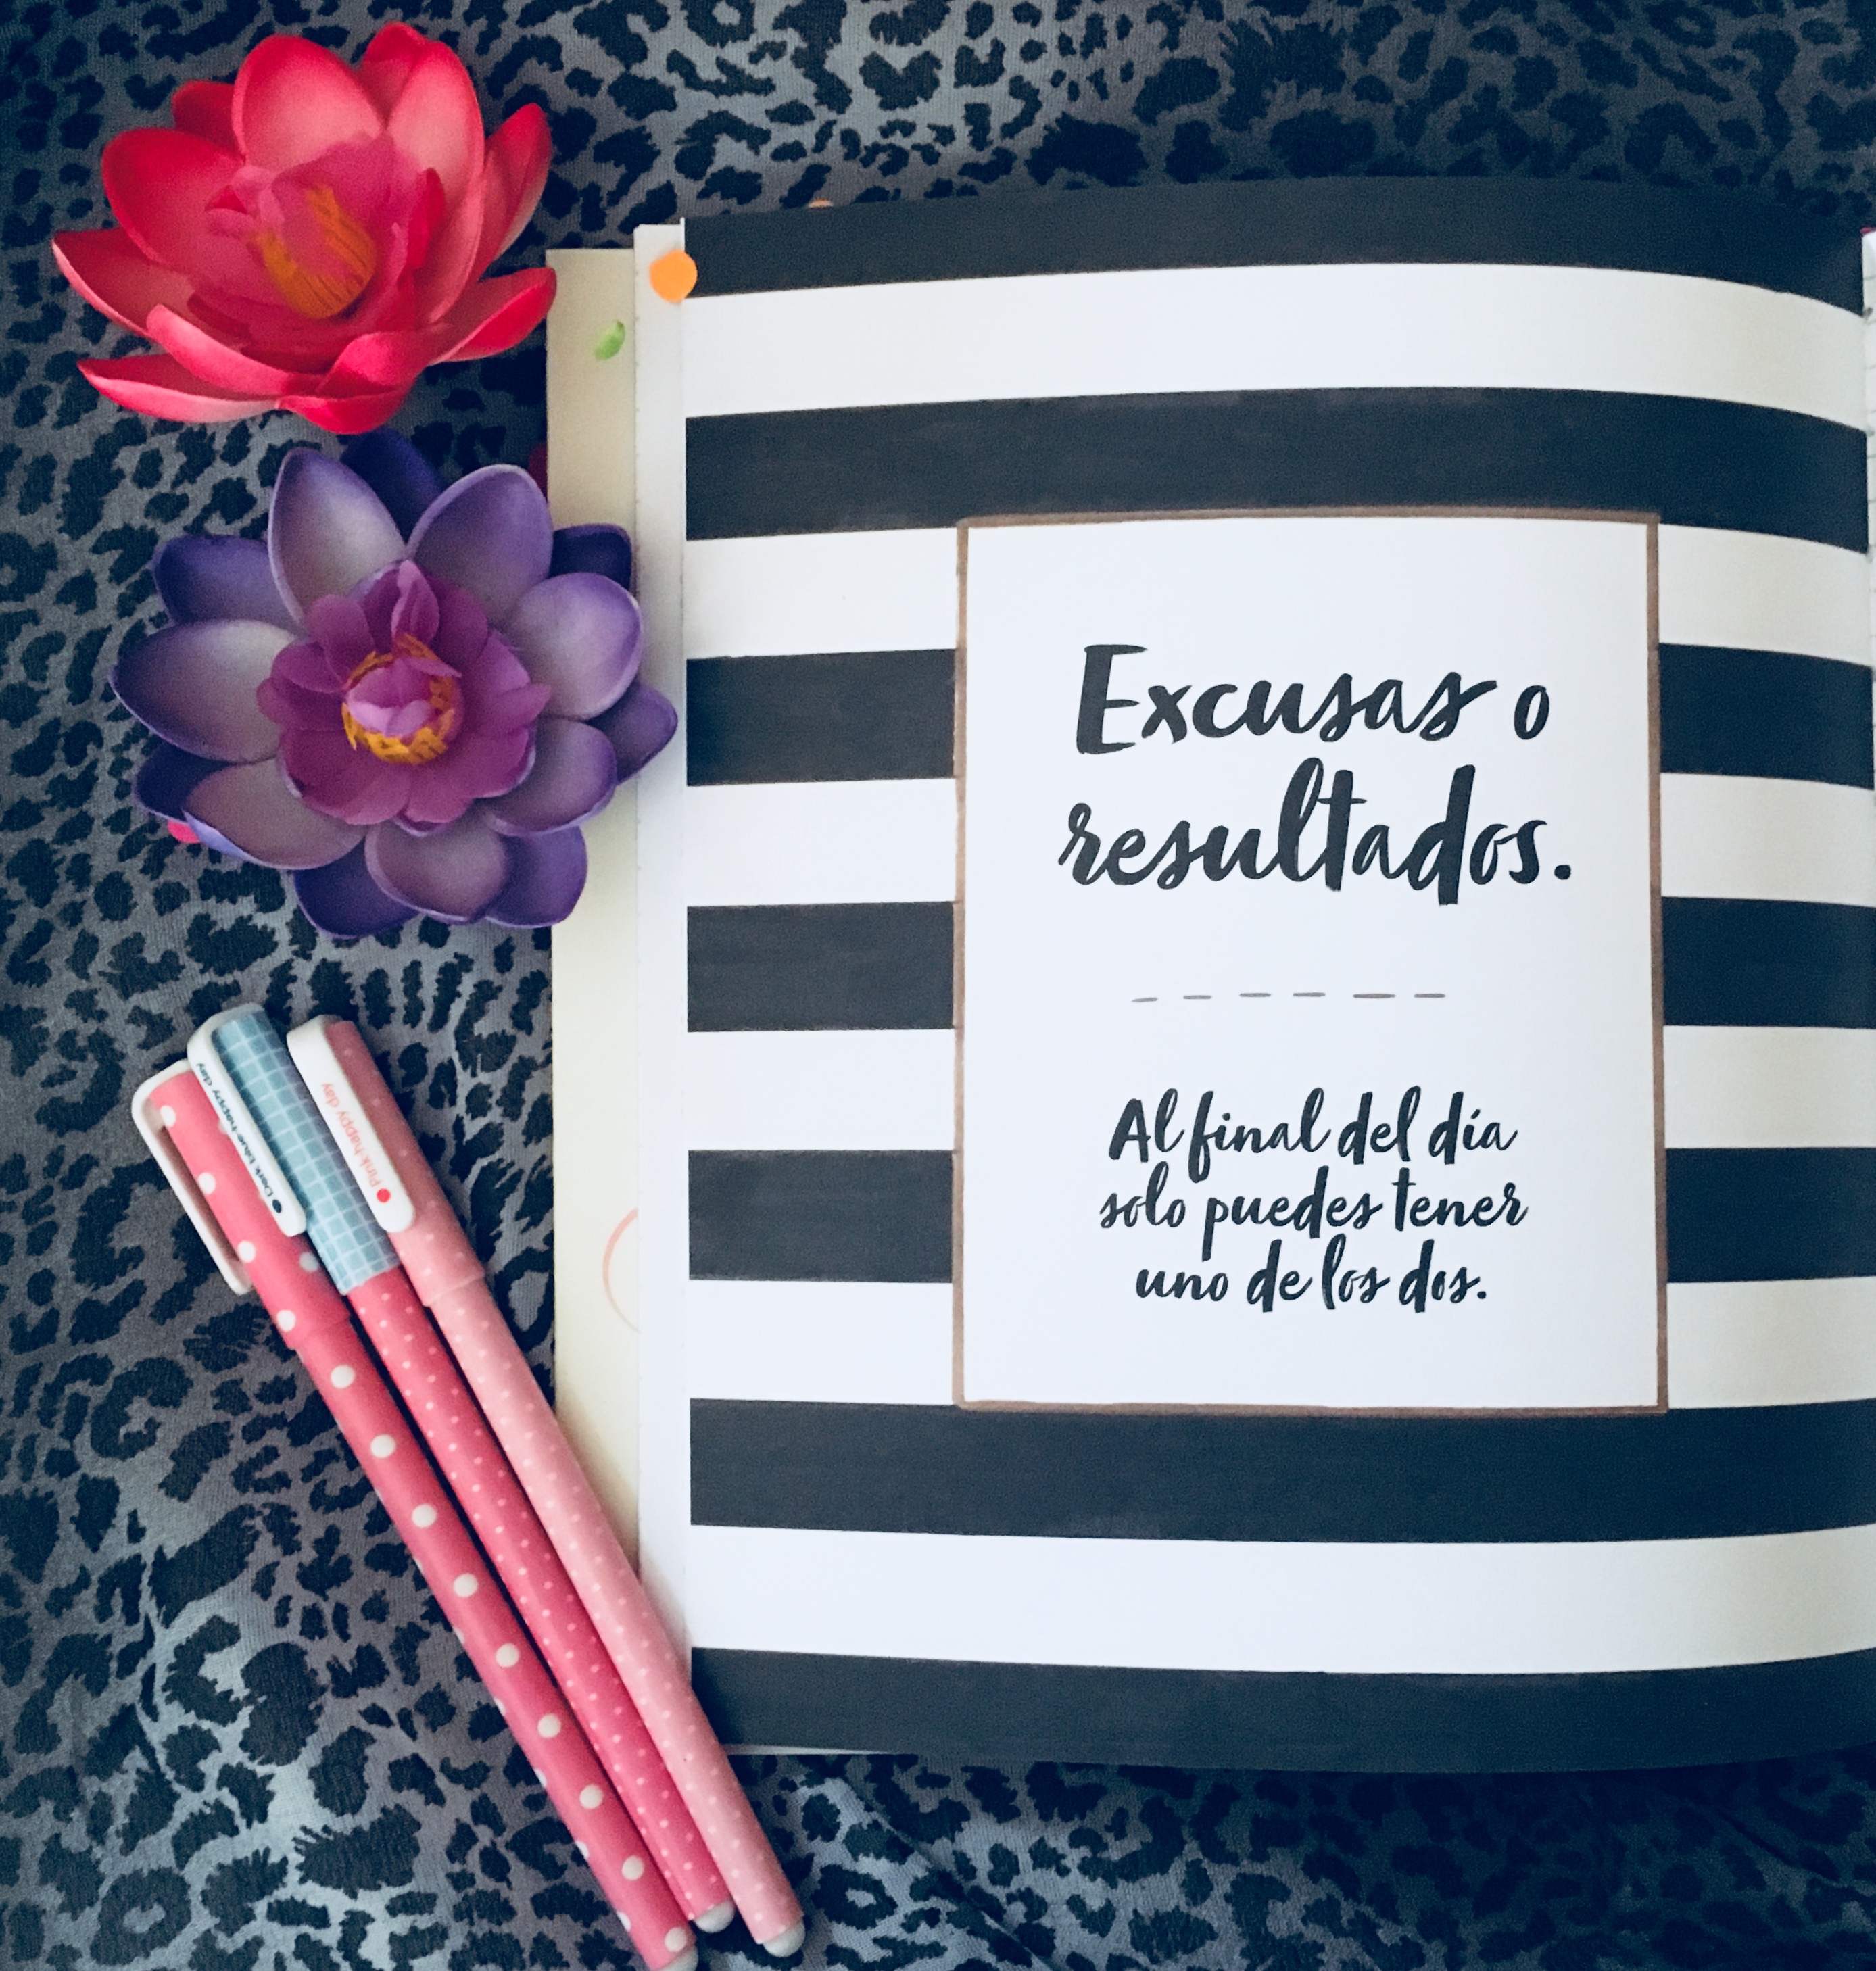 Excusas o
resultados.
Al final del día
solo puedes tener
uno de los dos.
happy day
Dark blue·happy day
Pink·happy day